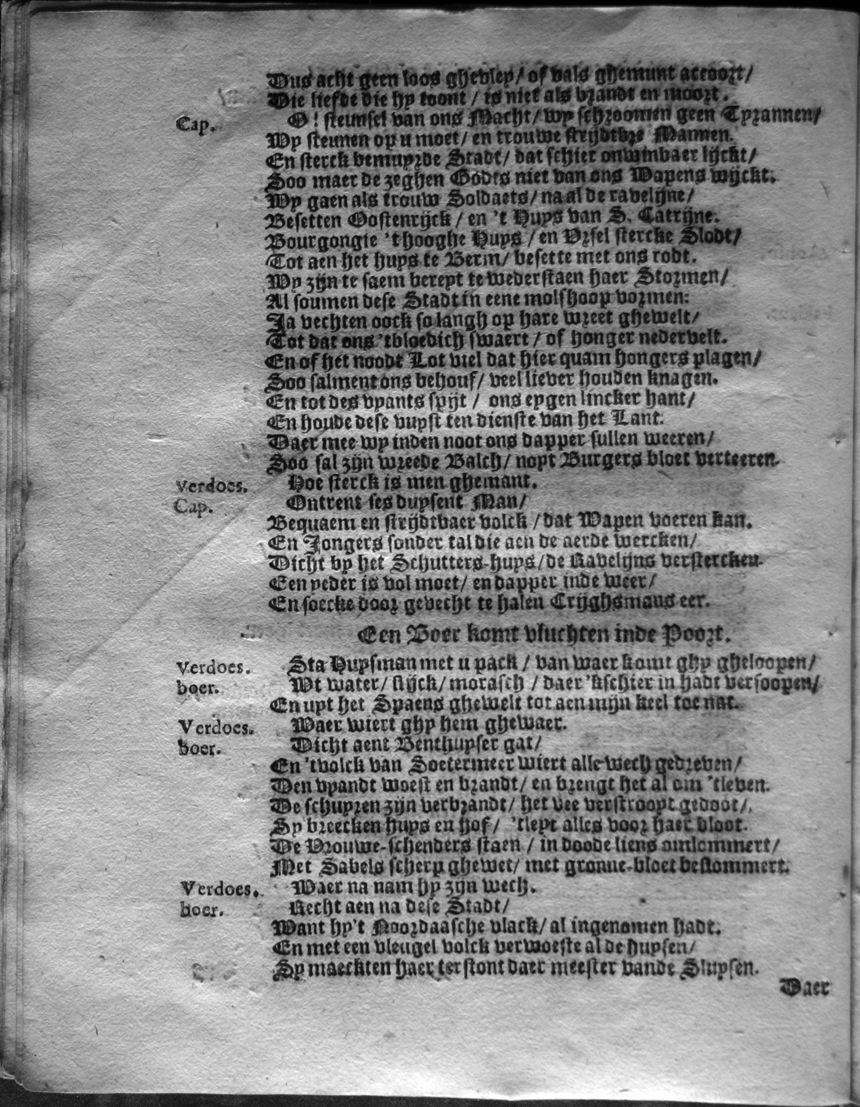 Dus acht geen loos ghevley/ of vals ghemunt accoort/
Die liefde die hy toont / is niet als brandt en moort.
Cap. O! steunsel van ons Macht/ wy schroomen geen Tyrannen/
Wy steunen op u moet/ en trouwe strijdtbre Mannen.
En sterck bemuyrde Stadt/ dat schier onwinbaer lijckt/
Soo maer de zeghen Godts niet van ons Wapens wijckt.
Wy gaen als trouw Soldaets/ na al de ravelijne/
Besetten Oostenrijck / en 't Huys van S. Catrijne.
Bourgongie 't hooghe Huys / en Ursel stercke Slodt/
Tot aen het huys te Berm/ besette met ons rodt.
Wy zijn te saem bereyt te wederstaen haer Stormen/
Al soumen dese Stadt in eene molshoop vormen:
Ja vechten oock so langh op hare wreet ghewelt/
Tot dat ons 'tbloedich swaert / of honger nedervelt.
En of het noodt Lot viel dat hier quam hongers plagen/
Soo salment ons behouf/ veel liever houden knagen.
En tot des vyants spijt / ons eygen lincker hant/
En houde dese vuyst ten dienste van het Lant.
Daer mee wy inden noot ons dapper sullen weeren/
Soo sal zijn wreede Balch/ noyt Burgers bloet verteeren.
Verdoes. Hoe sterck is men ghemant.
Cap. Ontrent ses duysent Man/
Bequaem en strijdtbaer volck / dat Wapen voeren kan.
En Jongers sonder tal die aen de aerde wercken/
Dicht by het Schutters-huys/ de Ravelijns verstercken.
Een yeder is vol moet/ en dapper inde weer/
En soecke door gevecht te halen Crijghsmans eer.
Een Boer komt vluchten inde Poort.
Verdoes. Sta Huysman met u pack / van waer komt ghy gheloopen/
boer. Wt water/ slijck/ morasch / daer 'kschier in hadt versoopen/
En uyt het Spaens ghewelt tot aen mijn keel toe nat.
Verdoes. Waer wiert ghy hem ghewaer.
boer. Dicht aent Benthuyser gat/
En 'tvolck van Soetermeer wiert alle wech gedreven/
Den vyandt woest en brandt/ en brengt het al om 'tleven.
De schuyren zijn verbrandt/ het vee verstroopt gedoot/
Sy breecken huys en hof/ 'tleyt alles voor haer bloot.
De Vrouwe-schenders staen / in doode liens omlommert/
Met Sabels scherp ghewet/ met gronne-bloet beslommert.
Verdoes. Waer na nam hy zijn wech.
boer. Recht aen na dese Stadt/
Want hy't Noordaasche vlack/ al ingenomen hadt.
En met een vleugel volck verwoeste al de huysen/
Sy maeckten haer ter stont daer meester vande Sluysen.
Daer